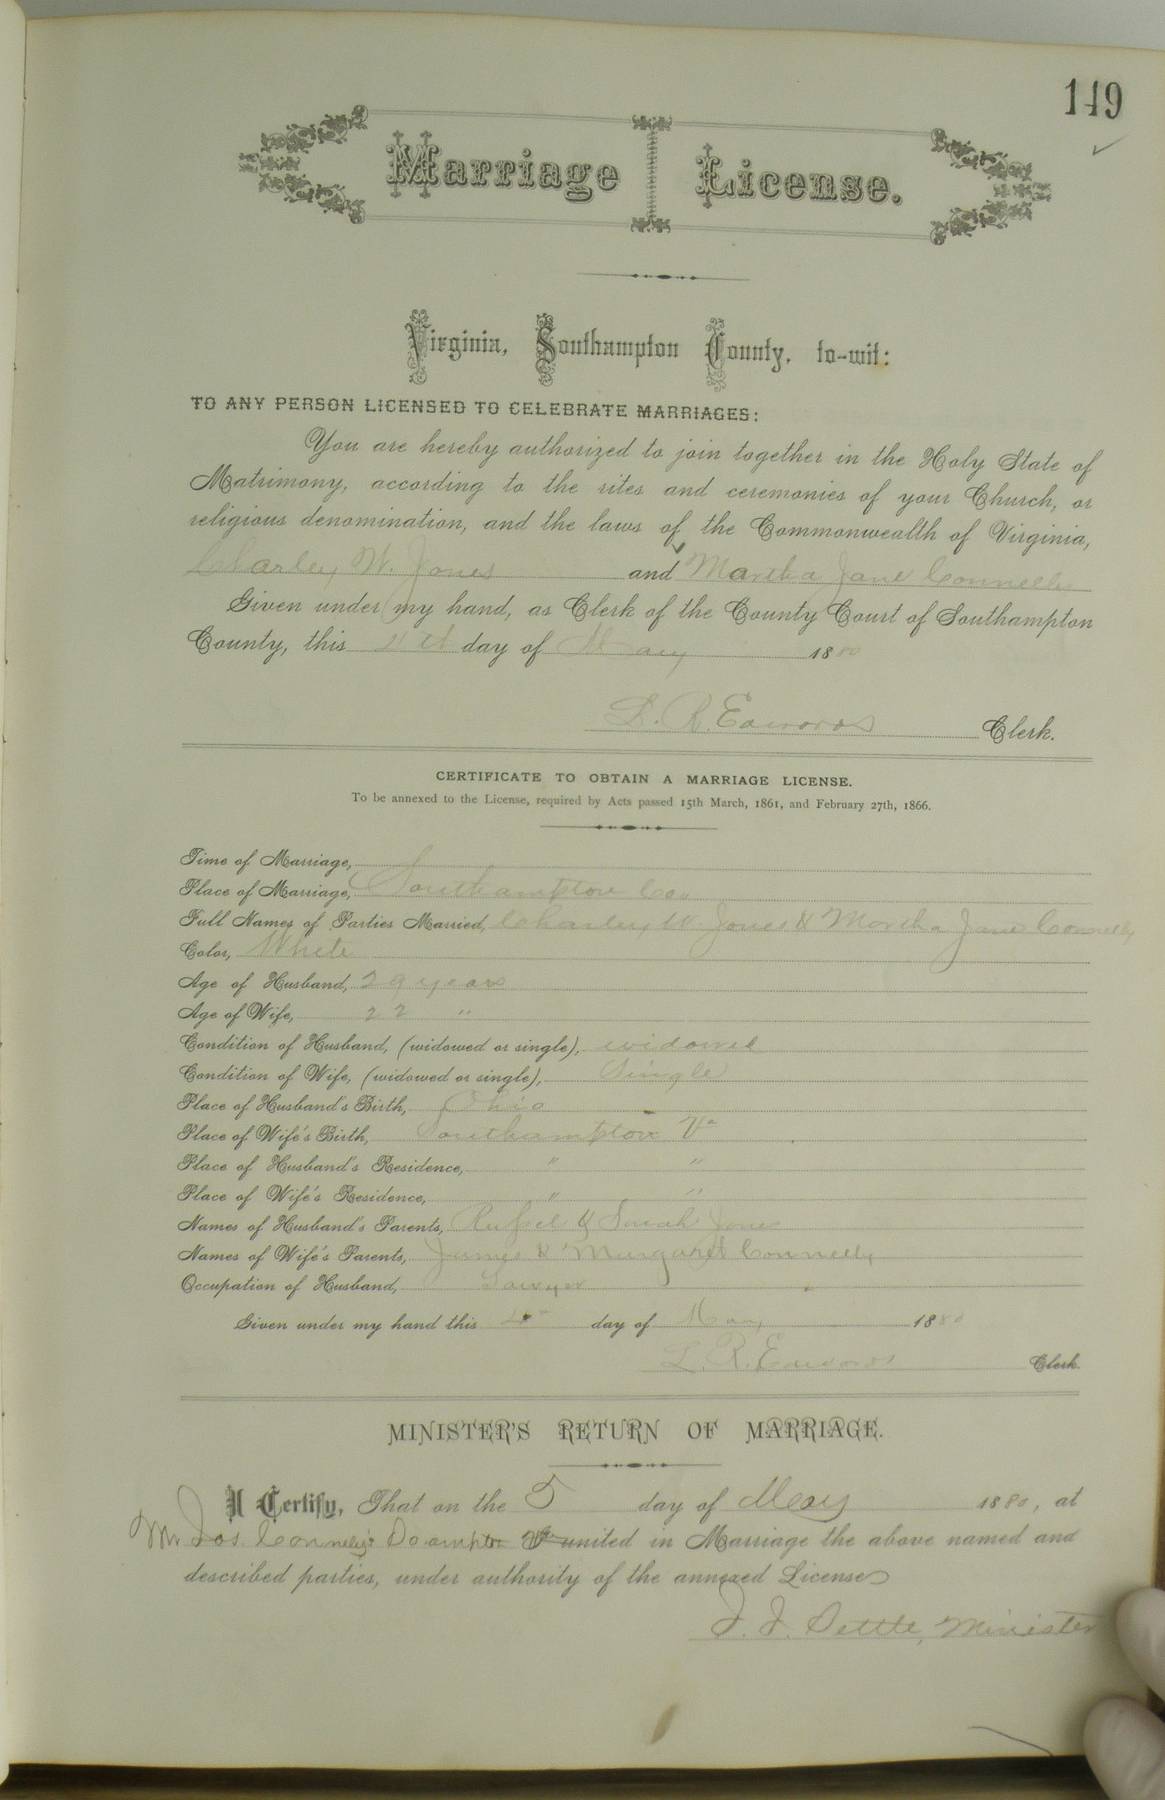 149
Marriage License.
Virginia, Southampton County, to-wit:
TO ANY PERSON LICENSED TO CELEBRATE MARRIAGES:
You are hereby authorized to join together in the Holy State of
Matrimony, according to the rites and ceremonies of your Church, or
religious denomination, and the laws of the Commonwealth of Virginia,
Charley W. Jones and Martha Jane Connelly
Given under my hand, as Clerk of the County Court of Southampton
County, this 4th day of May 1880
L. R. Edwards Clerk.
CERTIFICATE TO OBTAIN A MARRIAGE LICENSE.
To be annexed to the License, required by Acts passed 15th March, 1861, and February 27th, 1866.
Time of Marriage,
Place of Marriage, Southampton Co.
Full Names of Parties Married, Charley W. Jones & Martha Jane Connelly
Color, White
Age of Husband, 29 years
Age of Wife, 22 "
Condition of Husband, (widowed or single), widowed
Condition of Wife, (widowed or single), Single
Place of Husband's Birth, Ohio
Place of Wife's Birth, Southampton Va
Place of Husband's Residence, " "
Place of Wife's Residence, " "
Names of Husband's Parents, & Sarah Jones
Names of Wife's Parents, James & Margaret Connelly
Occupation of Husband, Sawyer
Given under my hand this 4th day of May 1880
L. R. Edwards Clerk.
MINISTER'S RETURN OF MARRIAGE.
I Certify, That on the 5 day of May 1880, at
Mr Jas. Connelly's united in Marriage the above named and
described parties, under authority of the annexed License
J. J. Minister